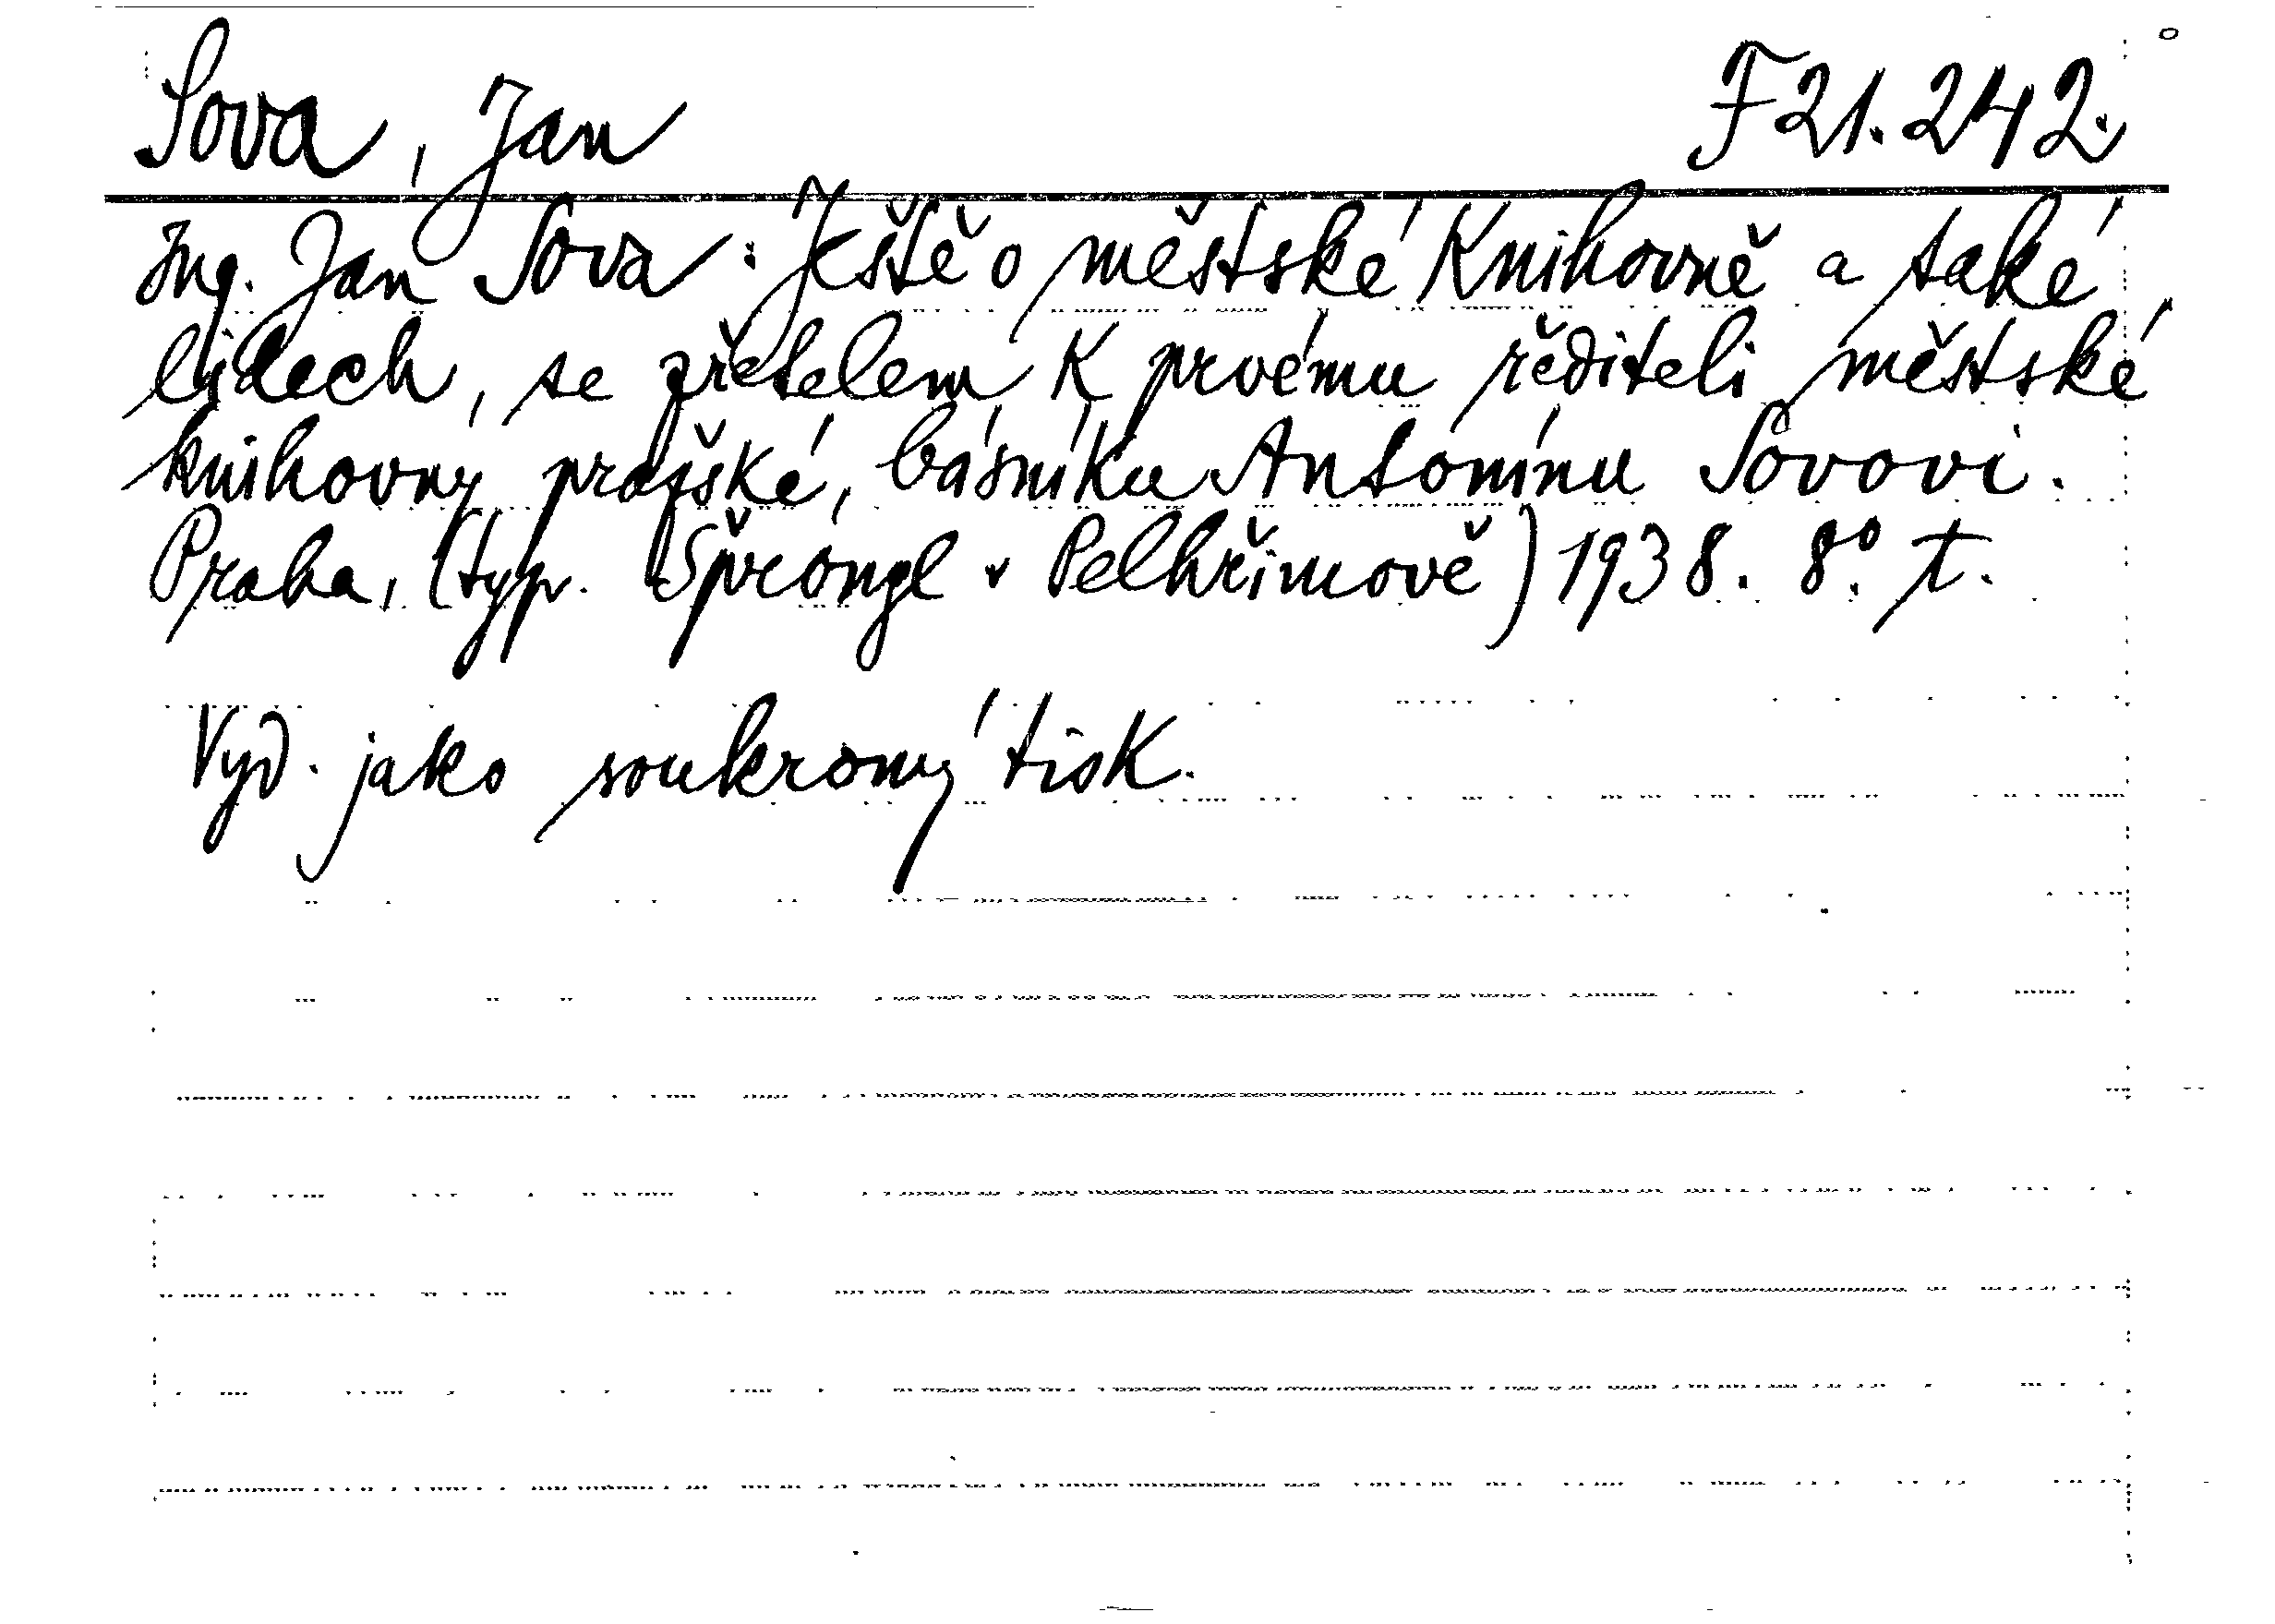 Sova, Jan F 21.242.
Ing. Jan Sova: Ještě o městské Knihovně a také
lidech, se zřetelem K prvému řediteli městské
knihovny pražské, básníku Antonínu Sovovi.
Praha, (typ. Šprongl v Pelhřimově) 1938. 8° t.
Vyd. jako soukromý tisk.